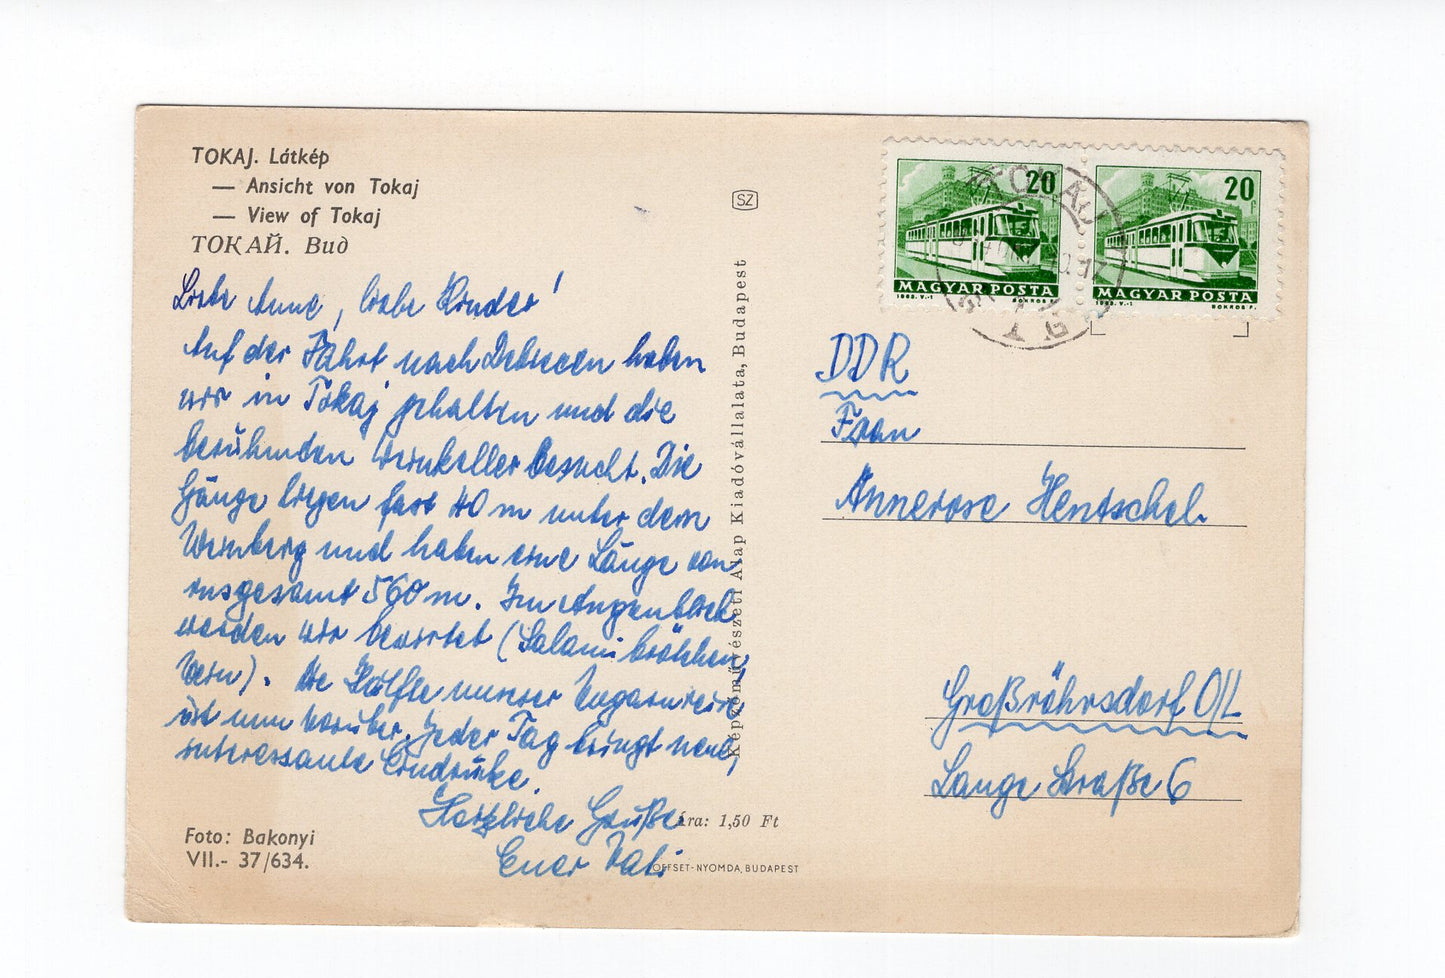 TOKAJ. Látkép
— Ansicht von Tokaj
— View of Tokaj
ТОКАЙ. Вид
Liebe Anne, liebe Kinder!
Auf der Fahrt nach Debrecen haben
wir in Tokaj gehalten und die
berühmden Weinkeller besucht. Die
Gänge liegen fast 40 m unter dem
Weinberg und haben eine Länge von
insgesamt 560 m. Im Augenblick
werden wir bewirtet (Salamibrötchen,
Wein). Die Hälfte unserer Ungarnreise
ist nun vorüber. Jeder Tag bringt neue,
interessante Eindrücke.
Herzliche Grüße
Euer Vati
Foto: Bakonyi
VII.- 37/634.
SZ
Képzőművészeti Alap Kiadóvállalata, Budapest
Ára: 1,50 Ft
OFFSET-NYOMDA, BUDAPEST
20
MAGYAR POSTA
1963. V.-1
BOKROS F.
20f
MAGYAR POSTA
1963. V.-1
BOKROS F.
DDR
Frau
Annerose Hentschel
Großröhrsdorf O/L
Lange Straße 6